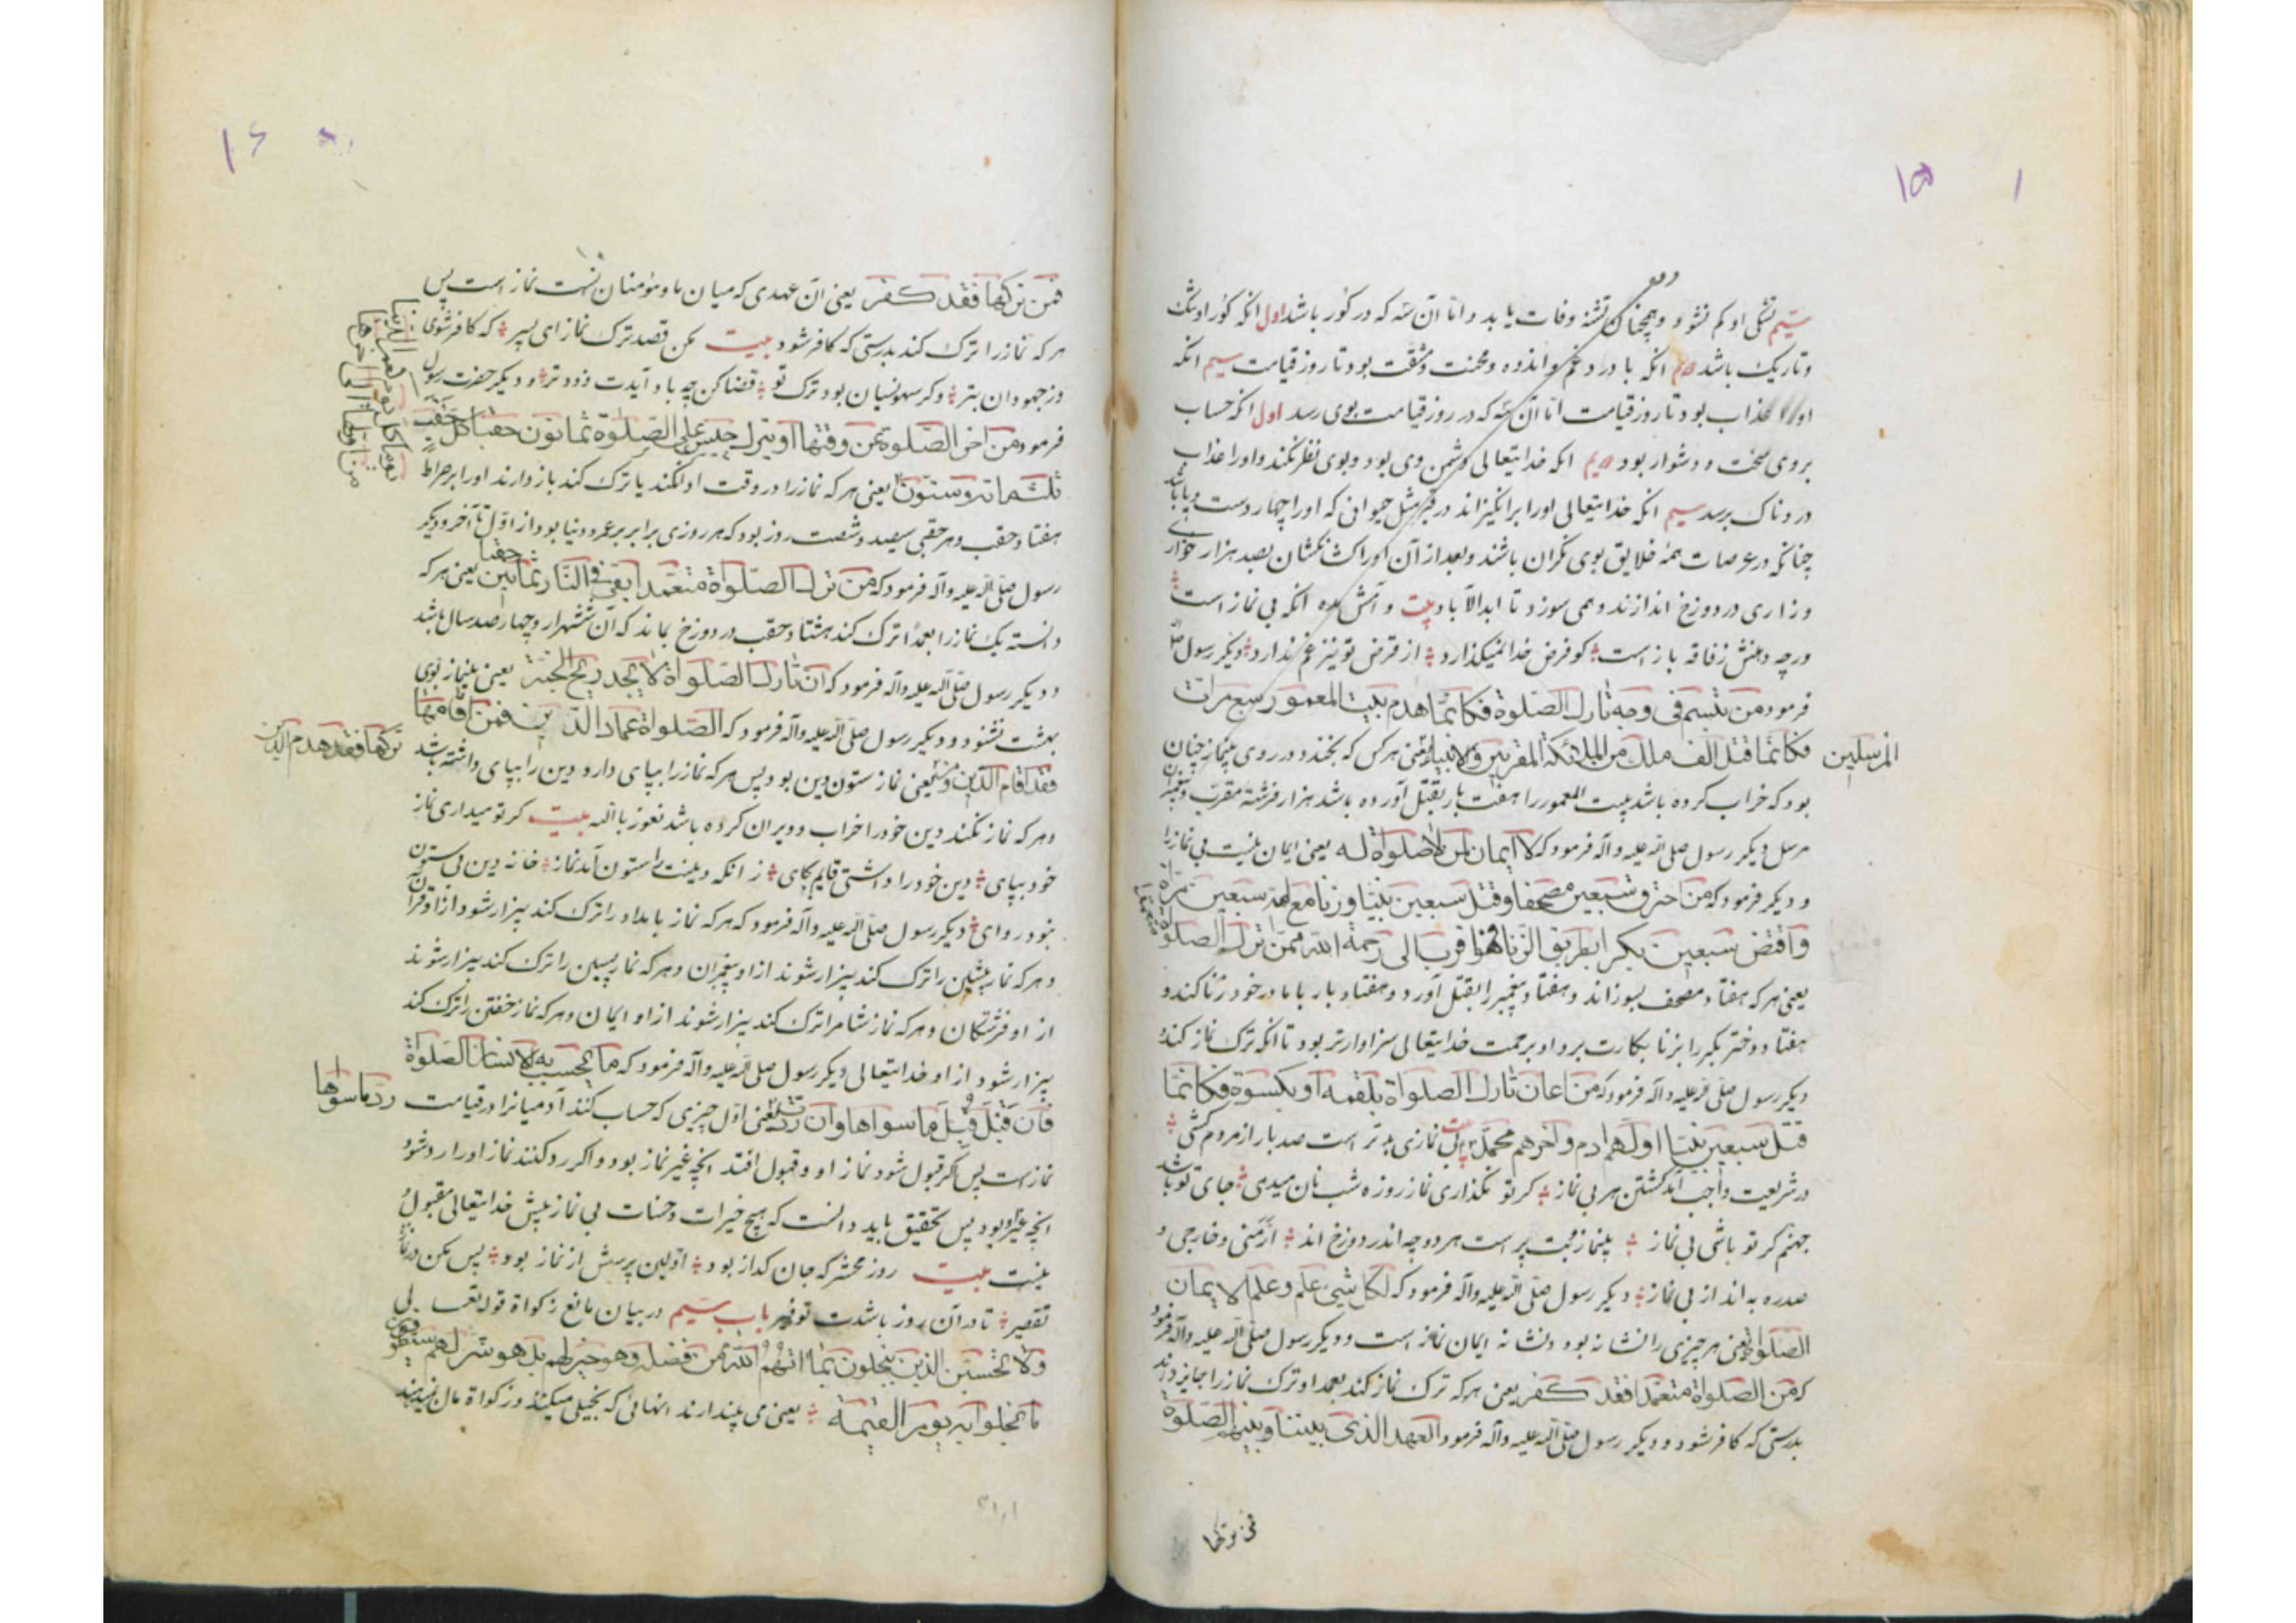 ۱۵
سیم تشنگی او کم نشود و همچنان تشنه وفات یابد و اما آن سه که در کور باشد اول انکه کور او تنک
و تاریک باشد دویم انکه با درد و غم و اندوه و محنت و مشقت بود تا روز قیامت سیم انکه
او را عذاب بود تا روز قیامت اما آن سه که در روز قیامت بوی رسد اول انکه حساب
بر وی سخت و دشوار بود دویم انکه خدایتعالی دشمن وی بود و بوی نظر نکند و او را عذاب
دردناک برسد سیم انکه خدایتعالی او را برانگیزاند در قبر مثل حیوانی که او را چهار دست و پا باشد
چنانکه در عرصات همه خلایق بوی نکران باشند و بعد از آن او را کشان کشان بصد هزار خواری
و زاری در دوزخ اندازند و همی سوزد تا ابد الآباد بیت و امش مده انکه بی نماز است
ورچه دهنش ز فاقه باز است کو فرض خدا نمیکذارد از قرض تو نیز غم ندارد و دیکر رسول
فرمود من تبسم فی وجه تارک الصلوة فکانما هدم بیت المعمور سبع مرات
فکانما قتل الف ملک من الملائکة المقربین والانبیاء یعنی هر کس که بخندد در روی بینماز چنان
المرسلین
بود که خراب کرده باشد بیت المعمور را هفت بار بقتل آورده باشد هزار فرشته مقرب و پیغمبر
مرسل دیکر رسول صلی الله علیه وآله فرمود که لا ایمان لمن لا صلواة له یعنی ایمان نیست بی نماز را
و دیکر فرمود که من احترق سبعین مصحفا وقتل سبعین نبیا وزنا مع امه سبعین مرة
وافتض سبعین بکرا بطریق الزنا فهو اقرب الی رحمة الله ممن ترک الصلوة
یعنی هر که هفتاد مصحف بسوزاند و هفتاد پیغمبر را بقتل آورد و هفتاد بار با مادر خود زنا کند و
هفتاد دختر بکر را بزنا بکارت برد او برحمت خدایتعالی سزاوارتر بود تا انکه ترک نماز کند
دیکر رسول صلی الله علیه وآله فرمود که من اعان تارک الصلواة بلقمه او بکسوة فکانما
قتل سبعین نبیا اولهم ادم واخرهم محمد بیت بی نمازی بدتر است صد بار از مردم کشی
در شریعت واجب آمد کشتن هر بی نماز کر تو نکذاری نماز روزه شب نان میدی جای تو باشد
جهنم کر تو باشی بی نماز بینماز و بت پرست هر دو چه اندر دوزخ اند ارمنی و خارجی و
صدره به اند از بی نماز دیکر رسول صلی الله علیه وآله فرمود که لکل شیئ علم وعلم الایمان
الصلواة یعنی هر چیزی را نشانه بود و نشانه ایمان نماز است و دیکر رسول صلی الله علیه وآله فرمود
که من الصلواة متعمدا فقد کفر یعنی هر که ترک نماز کند بعمد او ترک نماز را جایز داند
بدرستی که کافر شود و دیکر رسول صلی الله علیه وآله فرمود العهد الذی بیننا وبینهم الصلوة
فمن ترکها
۱۶
فمن ترکها فقد کفر یعنی ان عهدی که میان ما و مؤمنان است نماز است پس
هر که نماز را ترک کند بدرستی که کافر شود بیت مکن قصد ترک نماز ای پسر که کافر شوی
وز جهودان بتر وکر سهو نسیان بود ترک تو قضا کن چه باد آیدت زودتر و دیکر حضرت رسول
فرمود من اخر الصلوة عن وقتها او یترک حبس علی الصلوة ثمانون حقبا کل حقب
ثلثمائه وستون یعنی هر که نماز را در وقت ادا نکند یا ترک کند باز دارند او را بر صراط
هفتاد حقب و هر حقبی سیصد و شصت روز بود که هر روزی برابر بر عمر دنیا بود از اول تا آخر و دیکر
رسول صلی الله علیه وآله فرمود که من ترک الصلواة متعمدا بقی فی النار ثمانین حقبا یعنی هر که
دانسته یک نماز را بعمدا ترک کند هشتاد حقب در دوزخ بماند که آن ششهزار و چهار صد سال باشد
و دیکر رسول صلی الله علیه وآله فرمود که ان تارک الصلواة لا یجد ریح الجنة یعنی بینماز بوی
بهشت نشنود و دیکر رسول صلی الله علیه وآله فرمود که الصلواة عماد الدین فمن اقامها
فقد اقام الدین ومن یعنی نماز ستون دین بود پس هر که نماز را بپای دارد دین را بپای داشته باشد
ترکها فقد هدم الدین
و هر که نماز نکند دین خود را خراب و ویران کرده باشد نعوذ بالله بیت کر تو میداری نماز
خود بپای دین خود را داشتی قایم بجای ز انکه دینت را ستون آمد نماز خانه دین بی ستون
نبود روای دیکر رسول صلی الله علیه وآله فرمود که هر که نماز بامداد را ترک کند بیزار شود از او قرآن
و هر که نماز پیشین را ترک کند بیزار شوند از او پیغمبران و هر که نماز پسین را ترک کند بیزار شوند
از او فرشتکان و هر که نماز شام را ترک کند بیزار شوند از او ایمان و هر که نماز خفتن را ترک کند
بیزار شود از او خدایتعالی دیکر رسول صلی الله علیه وآله فرمود که ما یحسب به الانسان الصلواة
فان قبل قبل ما سواها وان ردت یعنی اول چیزی که حساب کنند آدمیانرا در قیامت
رد ما سواها
نماز است پس اکر قبول شود نماز او و قبول افتد انچه غیر نماز بود و اکر رد کنند نماز او را رد شود
انچه غیر او بود پس تحقیق باید دانست که هیچ خیرات و حسنات بی نماز پیش خدایتعالی مقبول
نیست بیت روز محشر که جان کداز بود اولین پرسش از نماز بود پس مکن در نماز
تقصیر تا در آن روز باشدت توقیر باب سیم در بیان مانع زکواة قوله تعالی
ولا تحسبن الذین یبخلون بما اتیهم الله من فضله وهو خیر لهم بل هو شر لهم سیطوقون
ما بخلوا به یوم القیمة یعنی می پندارند انهائی که بخیلی میکنند و زکواة مال نمیدهند